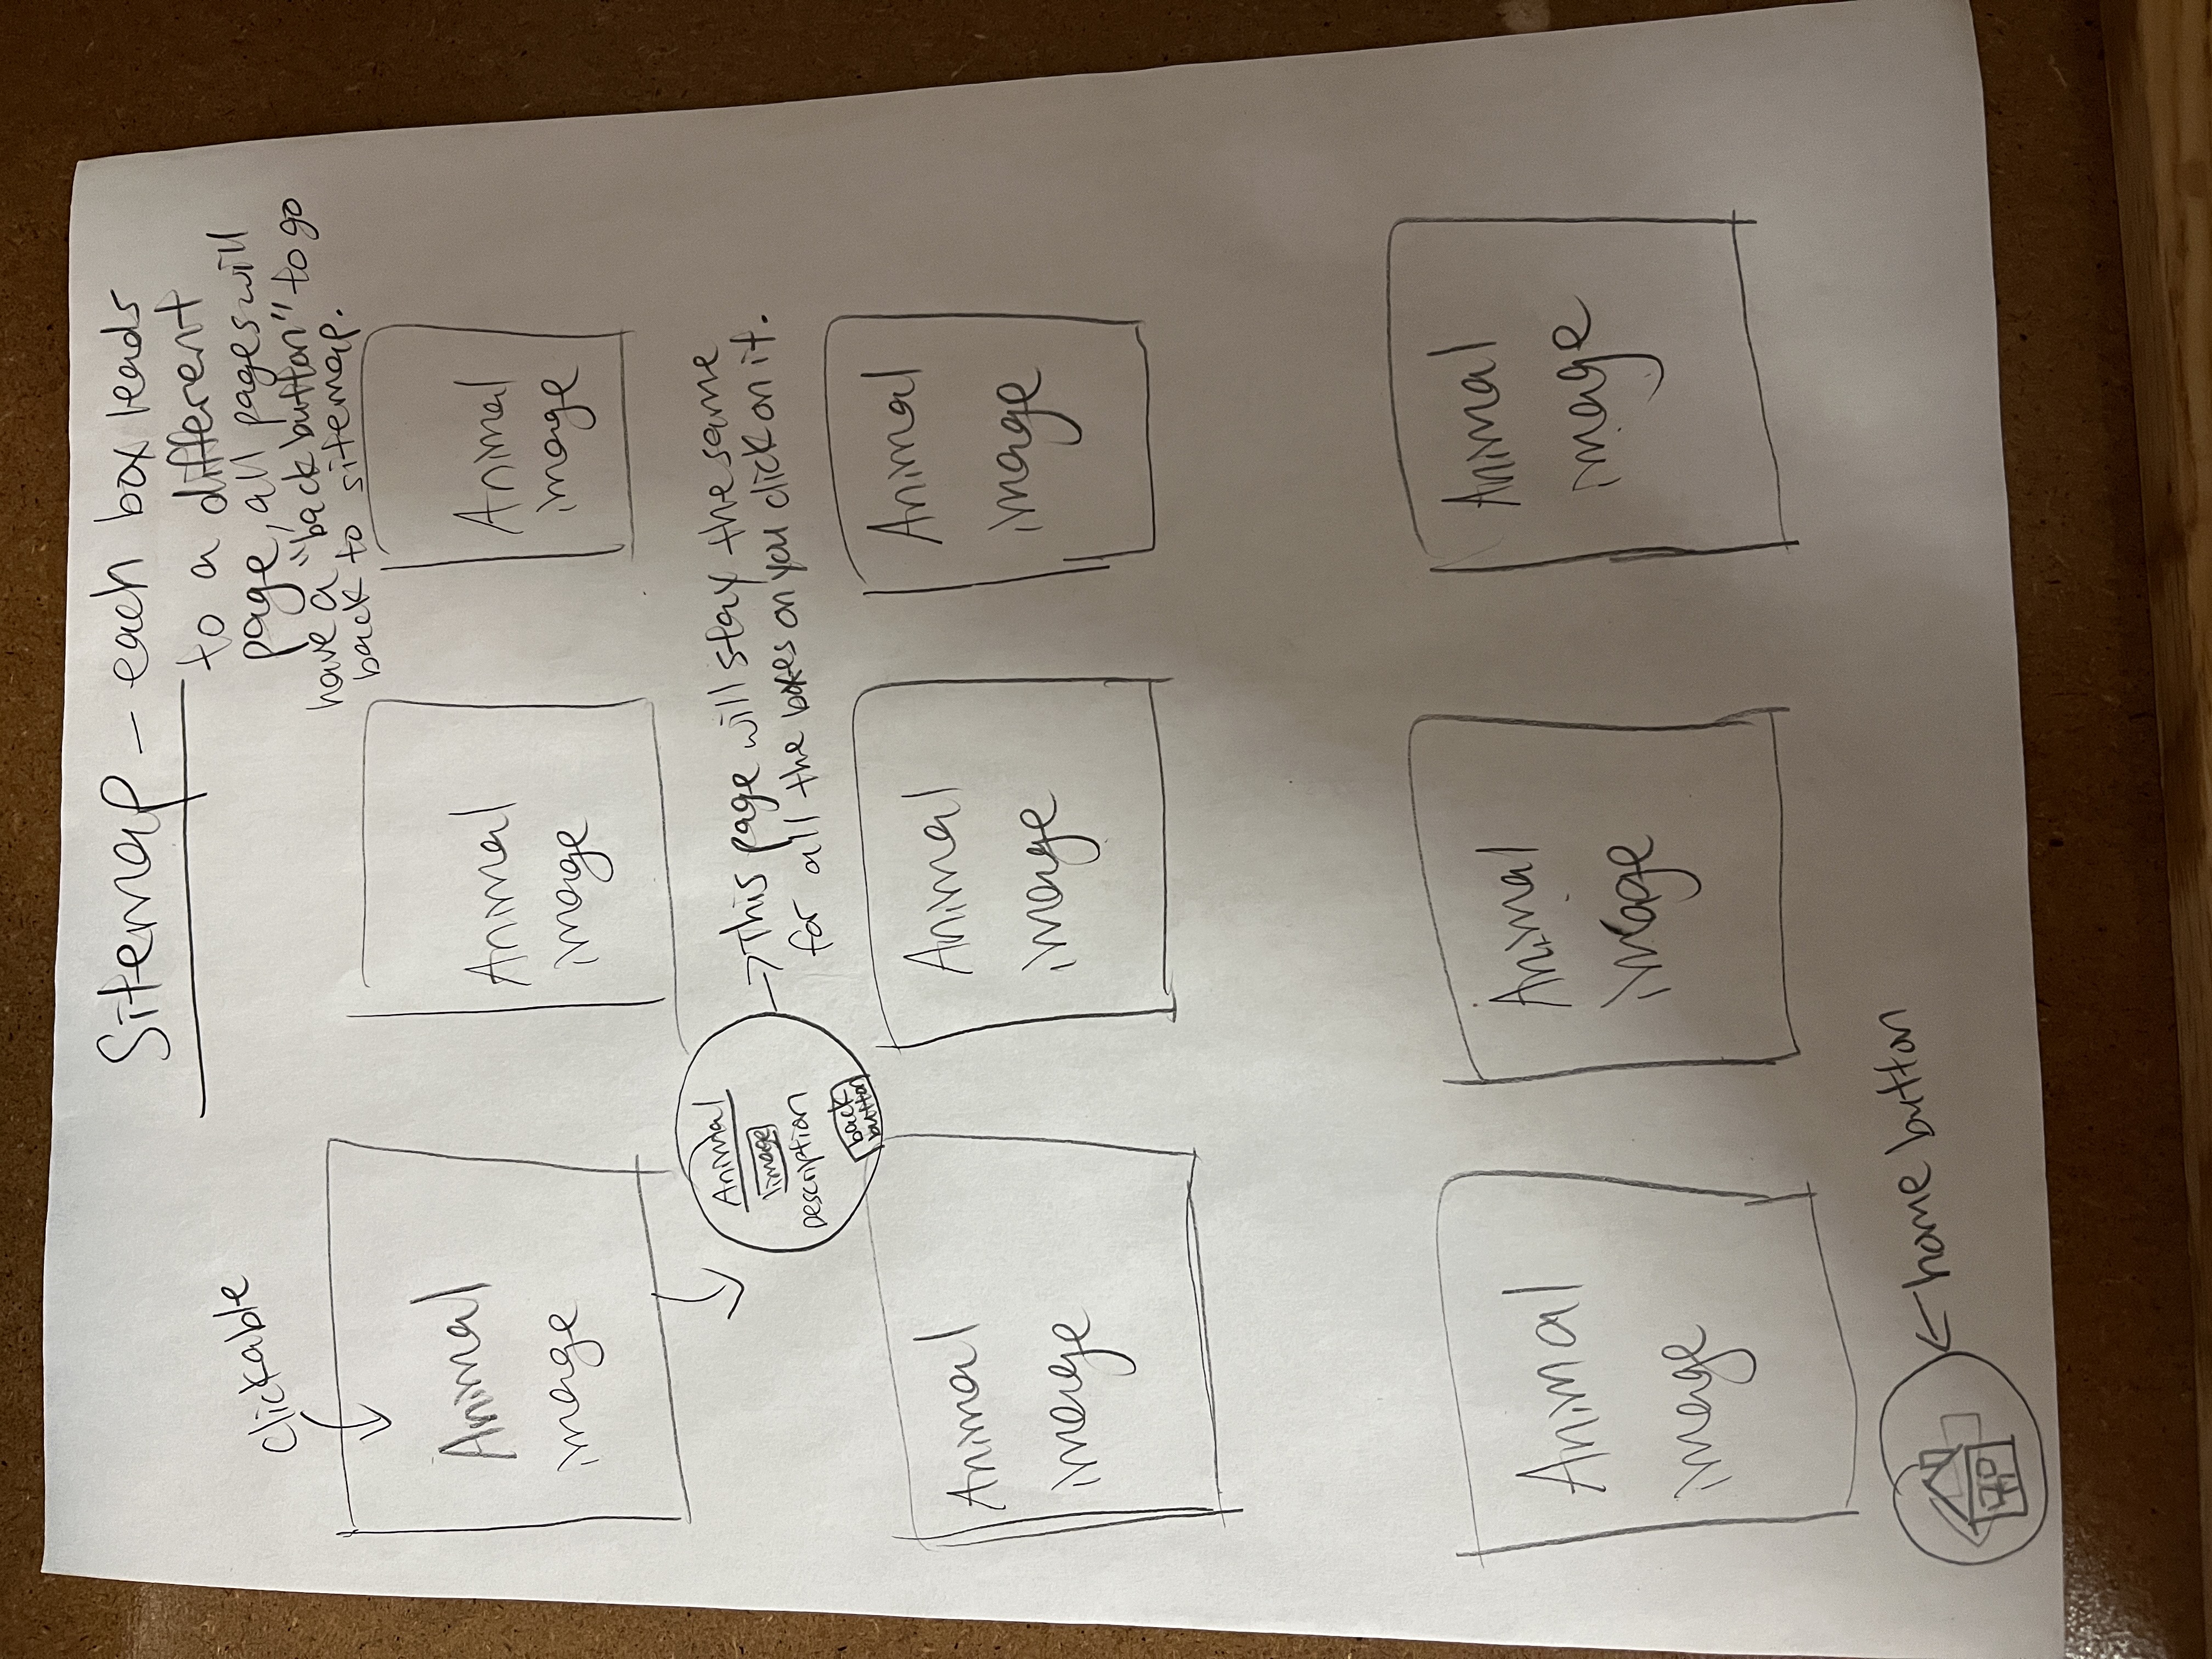 Sitemap - each box leads
to a different
page, all pages will
have a "back button" to go
back to sitemap.
clickable
Animal
image
Animal
image
Animal
image
Animal
image
Description
back
button
→ This page will stay the same
for all the boxes on you click on it.
Animal
image
Animal
image
Animal
image
Animal
image
Animal
image
Animal
image
← home button